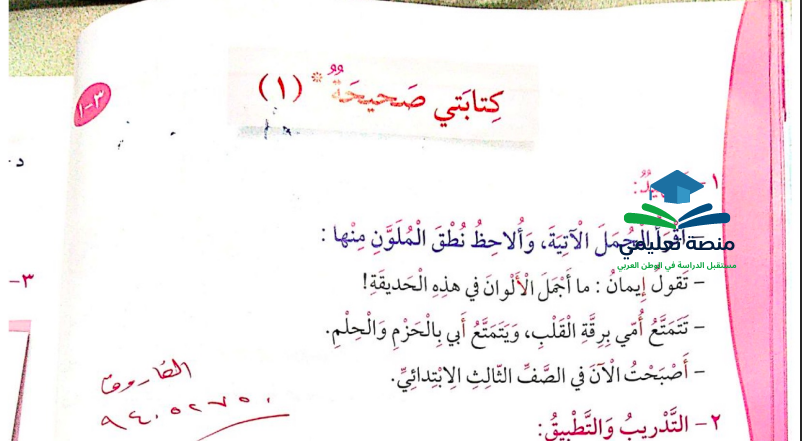 كِتابَتي صَحيحَةٌ * (١)
٣-١
١ -
أَقْرَأُ الْجُمَلَ الْآتِيَةَ، وَأُلاحِظُ نُطْقَ الْمُلَوَّنِ مِنْها :
منصة تعليمي
مستقبل الدراسة في الوطن العربي
– تَقول إيمانُ : ما أَجْمَلَ الْأَلْوانَ في هذِهِ الْحَديقَةِ!
– تَتَمَتَّعُ أُمّي بِرِقَّةِ الْقَلْبِ، وَيَتَمَتَّعُ أَبي بِالْحَزْمِ وَالْحِلْمِ.
– أَصْبَحْتُ الْآنَ في الصَّفِّ الثّالِثِ الِابْتِدائِيِّ.
٢- التَّدْريبُ وَالتَّطْبيقُ:
٣-